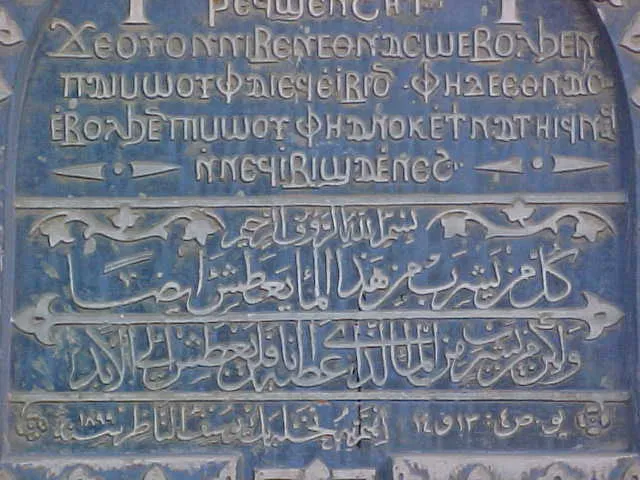 ⲣⲉϥϣⲉⲛϩⲏⲧ
ϫⲉ ⲟⲩⲟⲛ ⲛⲓⲃⲉⲛ ⲉⲑⲛⲁⲥⲱ ⲉⲃⲟⲗϧⲉⲛ
ⲡⲁⲓⲙⲱⲟⲩ ⲫⲁⲓ ⲉϥⲉ̀ⲓⲃⲓ ⲟⲛ · ⲫⲏ ⲇⲉ ⲉⲑⲛⲁⲥⲱ
ⲉ̀ⲃⲟⲗϧⲉⲛ ⲡⲓⲙⲱⲟⲩ ⲫⲏ ⲁⲛⲟⲕ ⲉ̀ϯⲛⲁⲧⲏⲓϥ ⲛⲁϥ
ⲛ̀ⲛⲉϥⲓ̀ⲃⲓ ϣⲁ ⲉ̀ⲛⲉϩ
بسم الله الرؤوف الرحيم
كل من يشرب من هذا الماء يعطش ايضاً
ولكن من يشرب من الماء الذي اعطيه انا فلن يعطش الى الابد
يو ص ٤ : ١٣ و ١٤